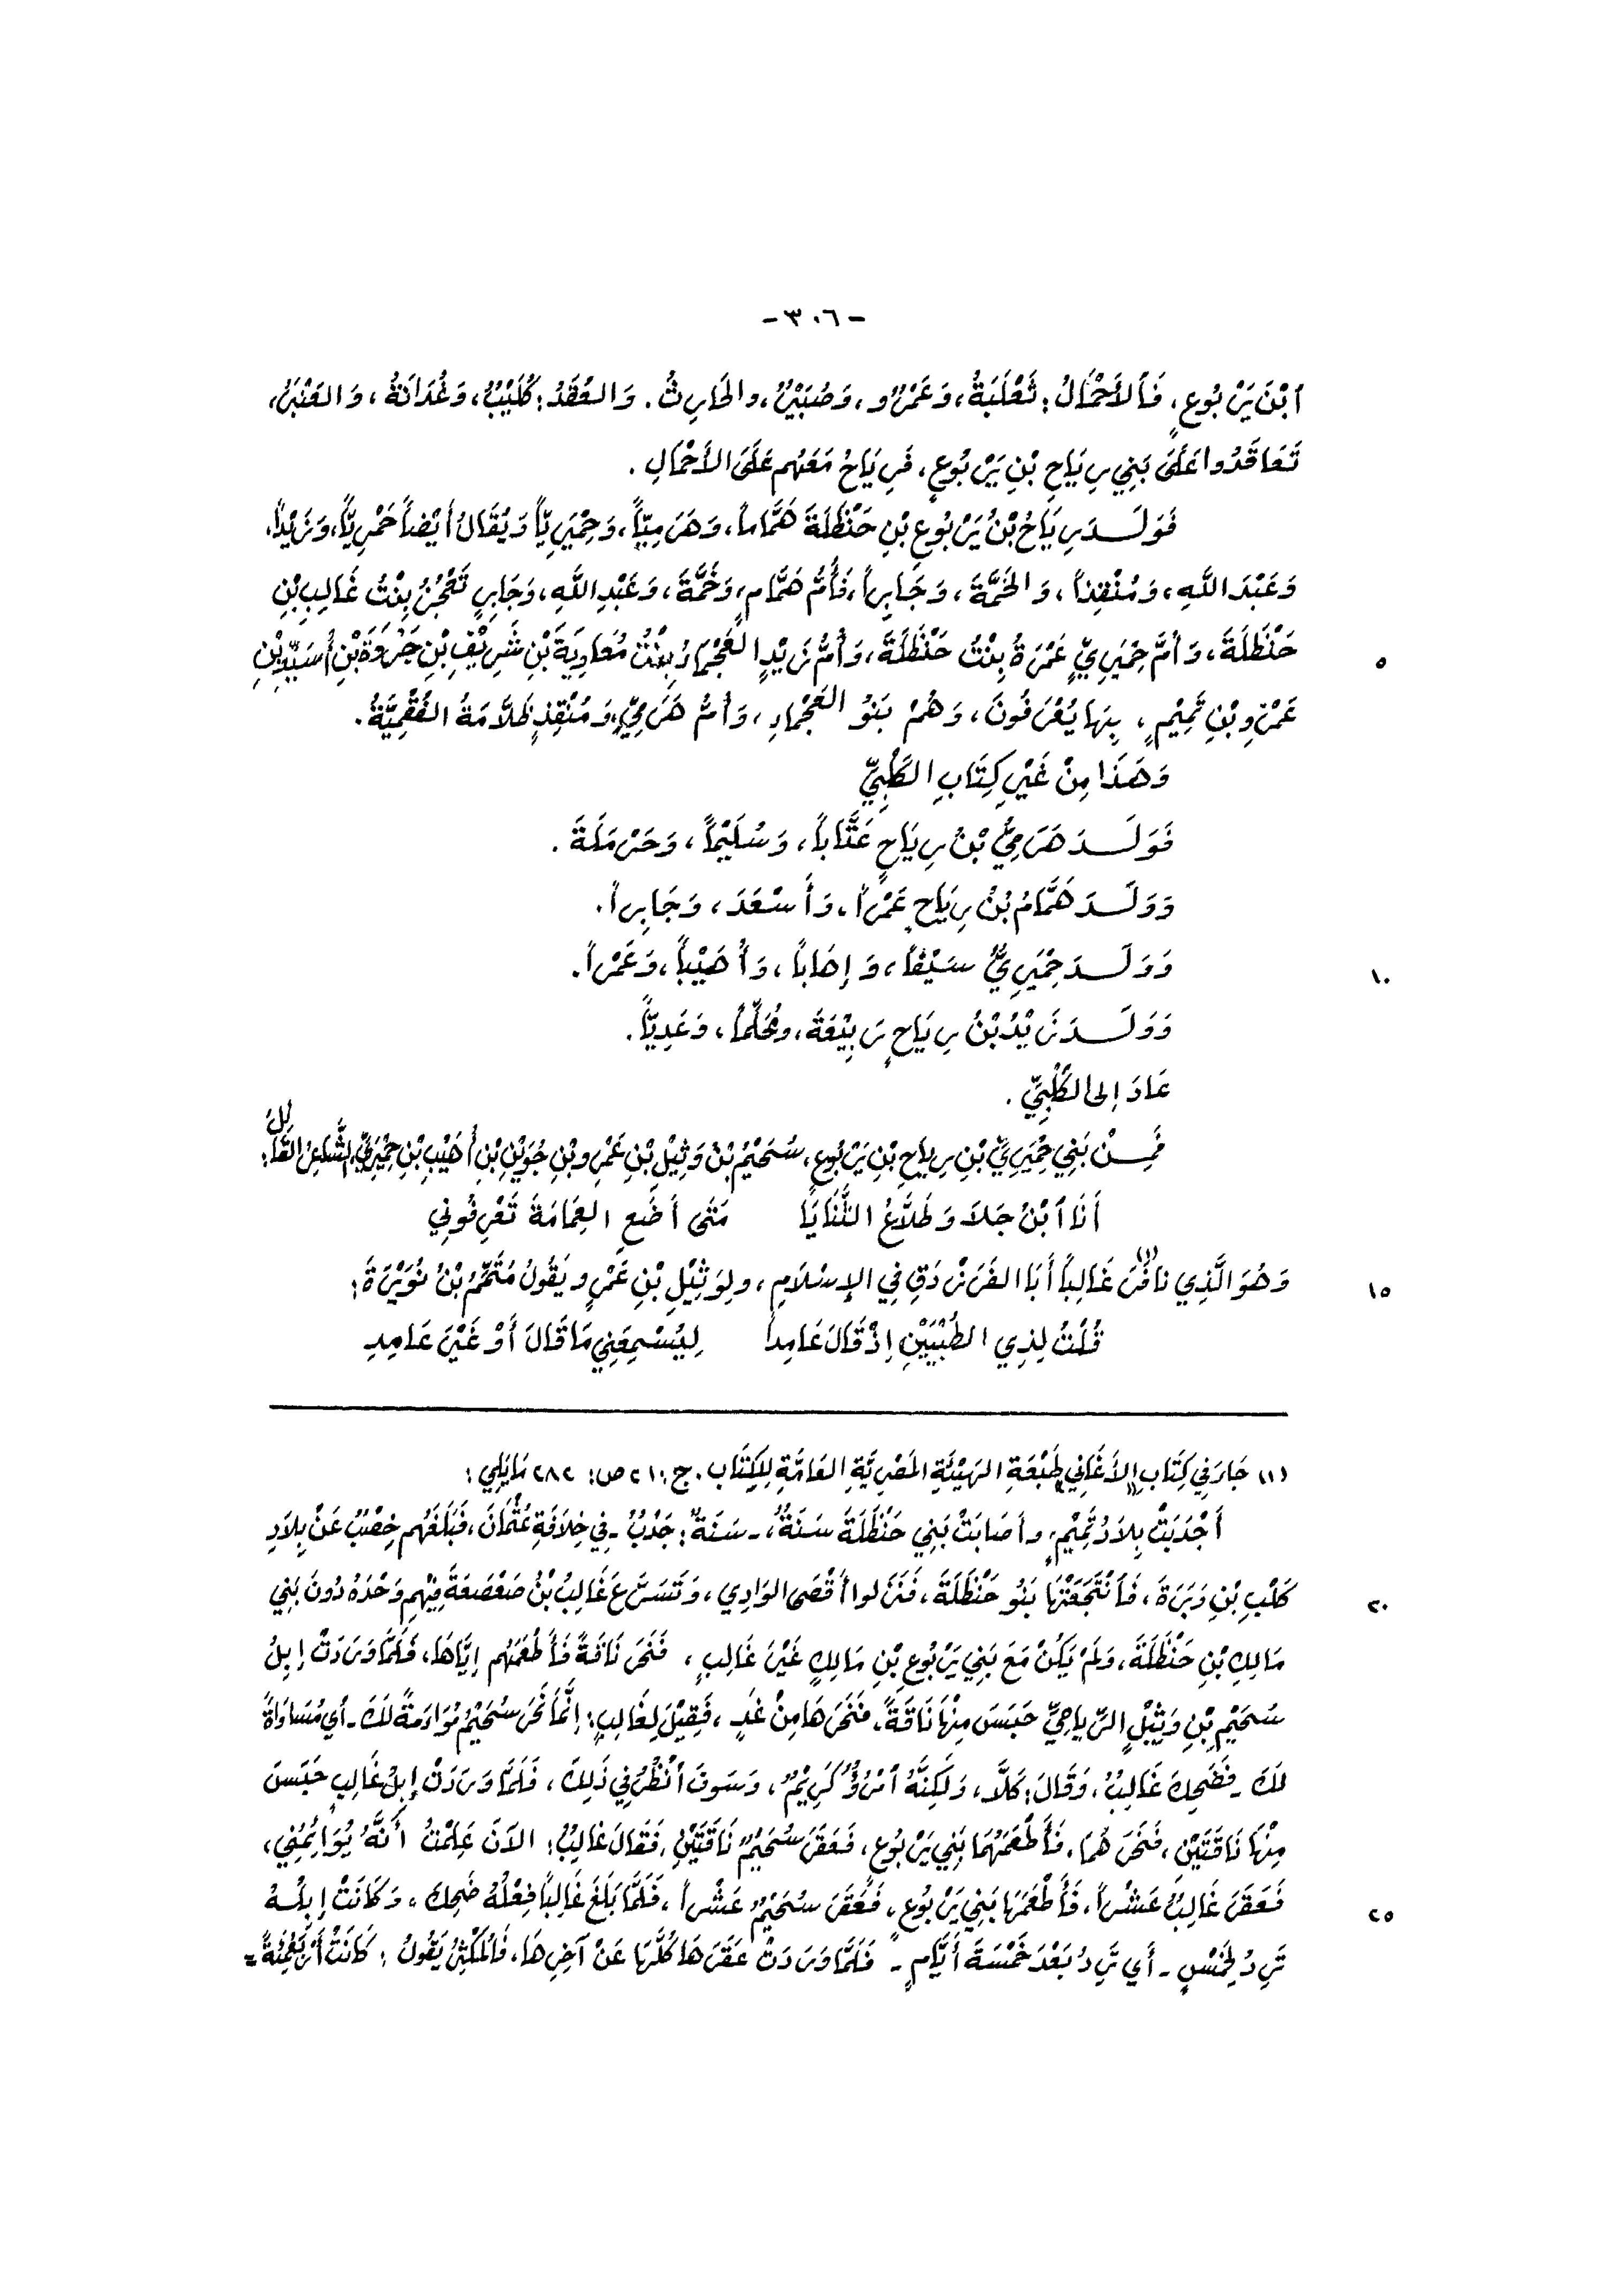 -٣٠٦-
ٱبْنَ يَرْبُوعٍ، فَالأَحْمَالُ: ثَعْلَبَةُ، وَعَمْرٌو، وَصُبَيْرٌ، والحَارِثُ. وَالعُقَدُ: كُلَيْبٌ، وَغُدَانَةُ، وَالعَنْبَرُ،
تَعَاقَدُوا عَلَى بَنِي رِيَاحِ بْنِ يَرْبُوعٍ، فَرِيَاحُ مَعَهُم عَلَى الأَحْمَالِ.
فَوَلَدَ رِيَاحُ بْنُ يَرْبُوعِ بْنِ حَنْظَلَةَ هَمَّاماً، وَهَرَمِيّاً، وَحِمْيَرِيّاً وَيُقَالُ أَيْضاً حَمْرِيّاً، وَزَيْداً،
وَعَبْدَ اللَّهِ، وَمُنْقِذاً، وَالحُمَّةَ، وَجَابِراً، فَأُمُّ هَمَّامٍ، وَحُمَّةَ، وَعَبْدِ اللَّهِ، وَجَابِرٍ تَحْجُنُ بِنْتُ غَالِبِ بْنِ
حَنْظَلَةَ، وَأُمَّ حِمْيَرِيٍّ عَمْرَةُ بِنْتُ حَنْظَلَةَ، وَأُمُّ زَيْدٍ العَجْمَاءُ بِنْتُ مُعَاوِيَةَ بْنِ شَرِيْفِ بْنِ جَرْوَةَ بْنِ أُسَيِّدِ بْنِ
٥
عَمْرِو بْنِ تَمِيْمٍ، بِهَا يُعْرَفُونَ، وَهُمْ بَنُو العَجْمَاءِ، وَأُمُّ هَرَمِيٍّ، وَمُنْقِذٍ ظَلَّامَةُ الفُقْمِيَّةُ.
وَهَذَا مِنْ غَيْرِ كِتَابِ الكَلْبِيِّ
فَوَلَدَ هَرَمِيُّ بْنُ رِيَاحٍ عَتَّاباً، وَسُلَيْماً، وَحَرْمَلَةَ.
وَوَلَدَ هَمَّامُ بْنُ رِيَاحٍ عَمْراً، وَأَسْعَدَ، وَجَابِراً.
وَوَلَدَ حِمْيَرِيُّ سَيْفاً، وَإِهَاباً، وَأُهَيْباً، وَعَمْراً.
١٠
وَوَلَدَ زَيْدُ بْنُ رِيَاحٍ رَبِيْعَةَ، ومُحَلِّماً، وَعَدِيّاً.
عَادَ إلى الكَلْبِيِّ.
فَمِنْ بَنِي حِمْيَرِيِّ بْنِ رِيَاحِ بْنِ يَرْبُوعٍ، سُحَيْمُ بْنُ وَثِيْلِ بْنِ عَمْرِو بْنِ جُوَيْنِ بْنِ أُهَيْبِ بْنِ حِمْيَرِيٍّ، الشَّاعِرُ القَائِلُ:
أَنَا ٱبْنُ جَلَا وَطَلَّاعُ الثَّنَايَا مَتَى أَضَعِ العِمَامَةَ تَعْرِفُونِي
وَهُوَ الَّذِي نافَرَ (١) غَالِباً أَبَا الفَرَزْدَقِ فِي الإِسْلَامِ، ولِوَثِيْلِ بْنِ عَمْرٍو يَقُولُ مُتَمِّمُ بْنُ نُوَيْرَةَ:
١٥
قُلْتُ لِذِي الطُّبْيَيْنِ إِذْ قَالَ عَامِداً لِيُسْمِعَنِي مَا قَالَ أَوْ غَيْرَ عَامِدِ
(١) جَاءَ فِي كِتَابِ الأَغَانِي طَبْعَةِ الهَيْئَةِ المِصْرِيَّةِ العَامَّةِ لِلكِتَابِ. ج: ٢١ ص: ٢٨٢ مَا يَلِي:
أَجْدَبَتْ بِلَادُ تَمِيْمٍ، وأَصَابَتْ بَنِي حَنْظَلَةَ سَنَةٌ، - سَنَةٌ: جَدْبٌ - فِي خِلافَةِ عُثْمَانَ، فَبَلَغَهُم خِصْبٌ عَنْ بِلَادِ
كَلْبِ بْنِ وَبَرَةَ، فَٱنْتَجَعَتْهَا بَنُو حَنْظَلَةَ، فَنَزَلوا أَقْصَى الوَادِي، وَتَسَرَّعَ غَالِبُ بْنُ صَعْصَعَةَ فِيْهِم وَحْدَهُ دُونَ بَنِي
٢٠
مَالِكِ بْنِ حَنْظَلَةَ، وَلَمْ يَكُنْ مَعَ بَنِي يَرْبُوعِ بْنِ مَالِكٍ غَيْرَ غَالِبٍ، فَنَحَرَ نَاقَةً فَأَطْعَمَهُم إِيَّاهَا، فَلَمَّا وَرَدَتْ إِبِلُ
سُحَيْمِ بْنِ وَثِيْلٍ الرِّيَاحِيِّ حَبَسَ مِنْهَا نَاقَةً، فَنَحَرَهَا مِنْ غَدٍ، فَقِيْلَ لِغَالِبٍ: إِنَّمَا نَحَرَ سُحَيْمٌ مُوَاءَمَةً لَكَ - أي مُسَاوَاةً
لَكَ - فَضَحِكَ غَالِبٌ، وَقَالَ: كَلَّا، وَلَكِنَّهُ ٱمْرُؤٌ كَرِيْمٌ، وَسَوفَ أَنْظُرُ فِي ذَلِكَ، فَلَمَّا وَرَدَتْ إِبِلُ غَالِبٍ حَبَسَ
مِنْهَا نَاقَتَيْنِ، فَنَحَرَهُمَا، فَأَطْعَمَهُمَا بَنِي يَرْبُوعٍ، فَعَقَرَ سُحَيْمٌ نَاقَتَيْنِ، فَقَالَ غَالِبٌ: الآنَ عَلِمْتُ أَنَّهُ يُوَائِمُنِي،
فَعَقَرَ غَالِبٌ عَشْراً، فَأَطْعَمَهَا بَنِي يَرْبُوعٍ، فَعَقَرَ سُحَيْمٌ عَشْراً، فَلَمَّا بَلَغَ غَالِباً فِعْلُهُ ضَحِكَ، وَكَانَتْ إِبِلُهُ
٢٥
تَرِدُ لِخَمْسٍ - أَي تَرِدُ بَعْدَ خَمْسَةِ أَيَّامٍ - فَلَمَّا وَرَدَتْ عَقَرَهَا كُلَّهَا عَنْ آخِرِهَا، فَالمُكْثِرُ يَقُولُ: كَانَتْ أَرْبَعَمِئَةً =